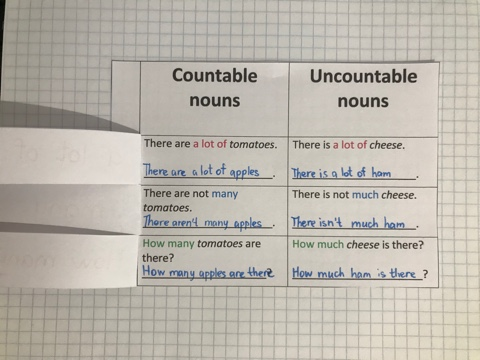 Countable
nouns
Uncountable
nouns
There are a lot of tomatoes.
There are a lot of apples.
There is a lot of cheese.
There is a lot of ham.
There are not many
tomatoes.
There aren't many apples.
There is not much cheese.
There isn't much ham.
How many tomatoes are
there?
How many apples are there?
How much cheese is there?
How much ham is there?